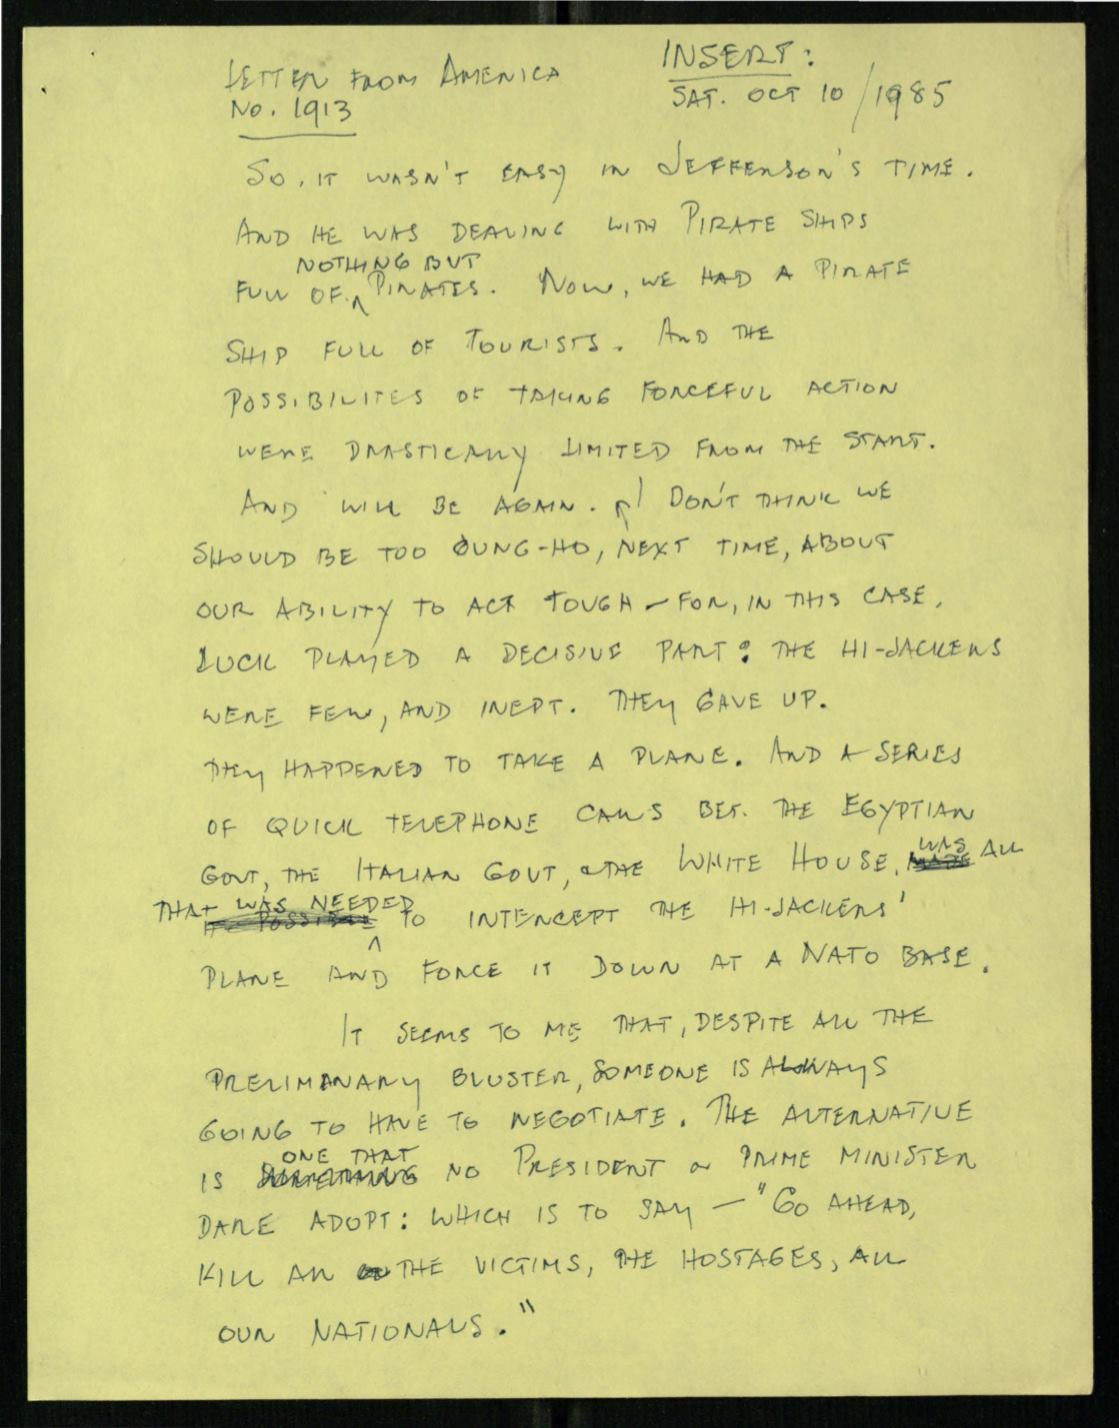 LETTER FROM AMERICA
NO. 1913
INSERT:
SAT. OCT 10/1985
SO, IT WASN'T EASY IN JEFFERSON'S TIME.
AND HE WAS DEALING WITH PIRATE SHIPS
NOTHING BUT
FULL OF PIRATES. NOW, WE HAD A PIRATE
SHIP FULL OF TOURISTS. AND THE
POSSIBILITES OF TAKING FORCEFUL ACTION
WERE DRASTICALLY LIMITED FROM THE START.
AND WILL BE AGAIN. I DON'T THINK WE
SHOULD BE TOO GUNG-HO, NEXT TIME, ABOUT
OUR ABILITY TO ACT TOUGH – FOR, IN THIS CASE,
LUCK PLAYED A DECISIVE PART: THE HI-JACKERS
WERE FEW, AND INEPT. THEY GAVE UP.
THEY HAPPENED TO TAKE A PLANE. AND A SERIES
OF QUICK TELEPHONE CALLS BET. THE EGYPTIAN
GOVT, THE ITALIAN GOVT, & THE WHITE HOUSE, WAS ALL
THAT WAS NEEDED
TO INTERCEPT THE HI-JACKERS'
PLANE AND FORCE IT DOWN AT A NATO BASE.
IT SEEMS TO ME THAT, DESPITE ALL THE
PRELIMANARY BLUSTER, SOMEONE IS ALWAYS
GOING TO HAVE TO NEGOTIATE. THE ALTERNATIVE
ONE THAT
IS NO PRESIDENT OR PRIME MINISTER
DARE ADOPT: WHICH IS TO SAY – "GO AHEAD,
KILL ALL THE VICTIMS, THE HOSTAGES, ALL
OUR NATIONALS."